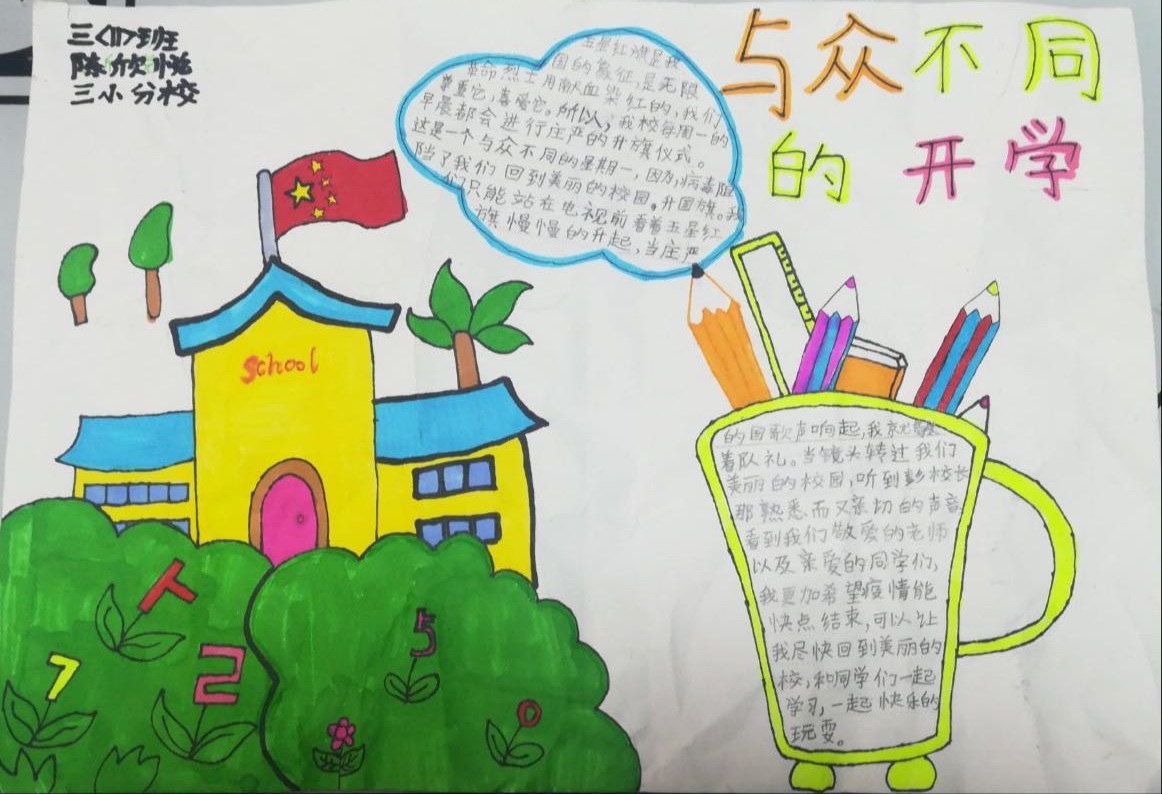 三（11）班
陈欣悦
三小分校
与众不同
的开学
五星红旗是我
国的象征，是无限
革命烈士用献血染红的，我们
尊重它，喜爱它。所以，我校每周一的
早晨都会进行庄严的升旗仪式。
这是一个与众不同的星期一，因为，病毒阻
挡了我们回到美丽的校园，升国旗。我
们只能站在电视前看着五星红
旗慢慢的升起，当庄严
school
的国歌声响起，我就
着队礼。当镜头转过我们
美丽的校园，听到彭校长
那熟悉而又亲切的声音
看到我们敬爱的老师
以及亲爱的同学们，
我更加希望疫情能
快点结束，可以让
我尽快回到美丽的
校，和同学们一起
学习，一起快乐的
玩耍。
7
2
5
0